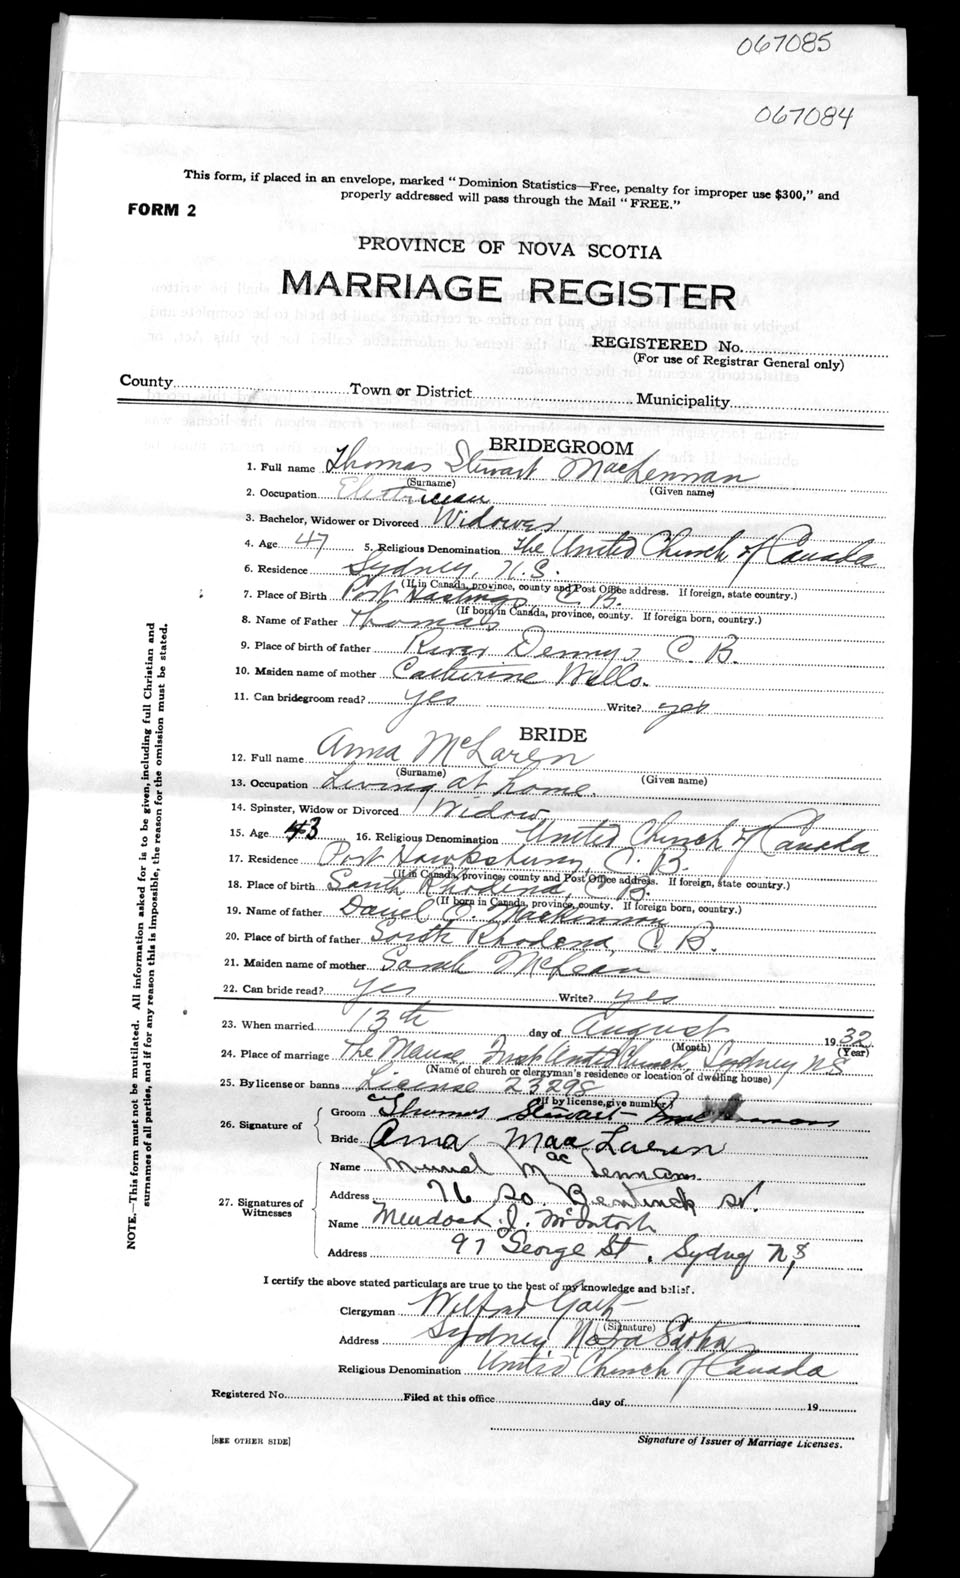 067085
067084
This form, if placed in an envelope, marked "Dominion Statistics—Free, penalty for improper use $300," and
properly addressed will pass through the Mail "FREE."
FORM 2
PROVINCE OF NOVA SCOTIA
MARRIAGE REGISTER
REGISTERED No.
(For use of Registrar General only)
County Town or District Municipality
BRIDEGROOM
1. Full name Thomas Stewart MacLennan
(Surname) (Given name)
2. Occupation Electrician
3. Bachelor, Widower or Divorced Widower
4. Age 47 5. Religious Denomination The United Church of Canada
6. Residence Sydney, N.S.
(If in Canada, province, county and Post Office address. If foreign, state country.)
7. Place of Birth Port Hastings, C B.
(If born in Canada, province, county. If foreign born, country.)
8. Name of Father Thomas
9. Place of birth of father River Dennys C. B.
10. Maiden name of mother Catherine Wells.
11. Can bridegroom read? yes Write? yes
BRIDE
12. Full name Anna McLaren
(Surname) (Given name)
13. Occupation Living at home.
14. Spinster, Widow or Divorced Widow
15. Age 43 16. Religious Denomination United Church of Canada
17. Residence Port Hawksbury C. B.
(If in Canada, province, county and Post Office address. If foreign, state country.)
18. Place of birth South Rhodena, C B.
(If born in Canada, province, county. If foreign born, country.)
19. Name of father Daniel C. MacKinnon
20. Place of birth of father South Rhodena, C B.
21. Maiden name of mother Sarah McLean
22. Can bride read? yes Write? yes
23. When married 13th day of August 1932
(Month) (Year)
24. Place of marriage The Manse, First United Church, Sydney N.S
(Name of church or clergyman's residence or location of dwelling house)
25. By license or banns License 23298
If by license, give number
26. Signature of
Groom Thomas Stewart
Bride Anna MacLaren
27. Signatures of Witnesses
Name Muriel MacLennan.
Address 76 So Bentinck St.
Name Murdoch J. McIntosh
Address 97 George St., Sydney N,S
I certify the above stated particulars are true to the best of my knowledge and belief.
Clergyman Wilfrid Gaetz
(Signature)
Address Sydney Nova Scotia
Religious Denomination United Church of Canada
Registered No. Filed at this office day of 19
[SEE OTHER SIDE] Signature of Issuer of Marriage Licenses.
NOTE.—This form must not be mutilated. All information asked for is to be given, including full Christian and
surnames of all parties, and if for any reason this is impossible, the reason for the omission must be stated.